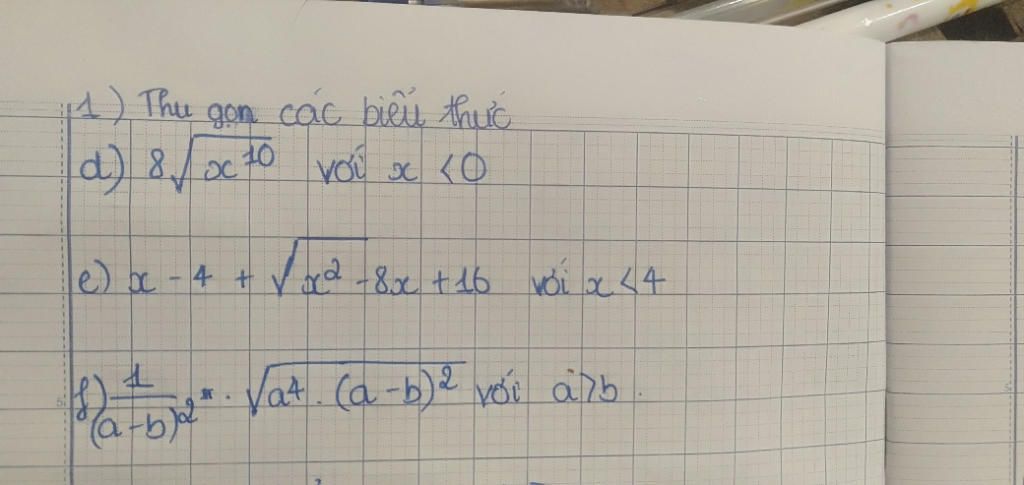 1) Thu gọn các biểu thức
d) 8√(x^10) với x < 0
e) x - 4 + √(x^2) - 8x + 16 với x < 4
f) 1/(a-b)^2 . √(a^4 . (a-b)^2) với a > b.